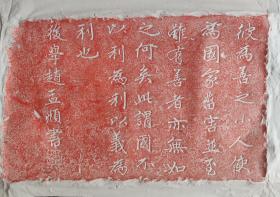 彼為善之小人使
為國家菑害並至
雖有善者亦無如
之何矣此謂國不
以利為利以義為
利也
後學趙孟頫書